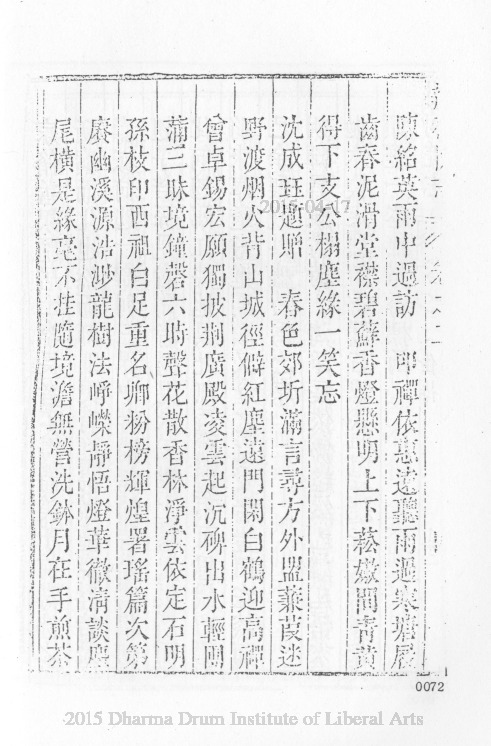 陳紹英雨中過訪　叩禪依惠遠聽雨過寒塘屐
齒春泥滑堂襟碧蘚香燈懸明上下菘嫰間青黃
得下支公榻塵緣一笑忘
沈成珏題贈　春色郊圻滿言尋方外盟蒹葭迷
野渡烟火背山城徑僻紅塵遠門閑白鶴迎高禪
曾卓錫宏願獨披荆廣殿凌雲起沉碑出水輕團
蒲三昧境鐘磬六時聲花散香林淨雲依定石明
孫枝印西祖白足重名卿粉榜輝煌署瑤篇次第
賡幽溪源浩渺龍樹法崢嶸靜悟燈華徹清談麈
尾橫是緣毫不挂隨境澹無營洗鉢月在手煎茶
0072
2015 Dharma Drum Institute of Liberal Arts